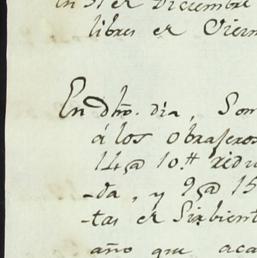 En 31 de Diziembre
libres de Viern
En dho. dia, Som
á los obrajeros
14@ 10.tt redu
-da, y 9@ 15
-tas de Sirbient
año que aca